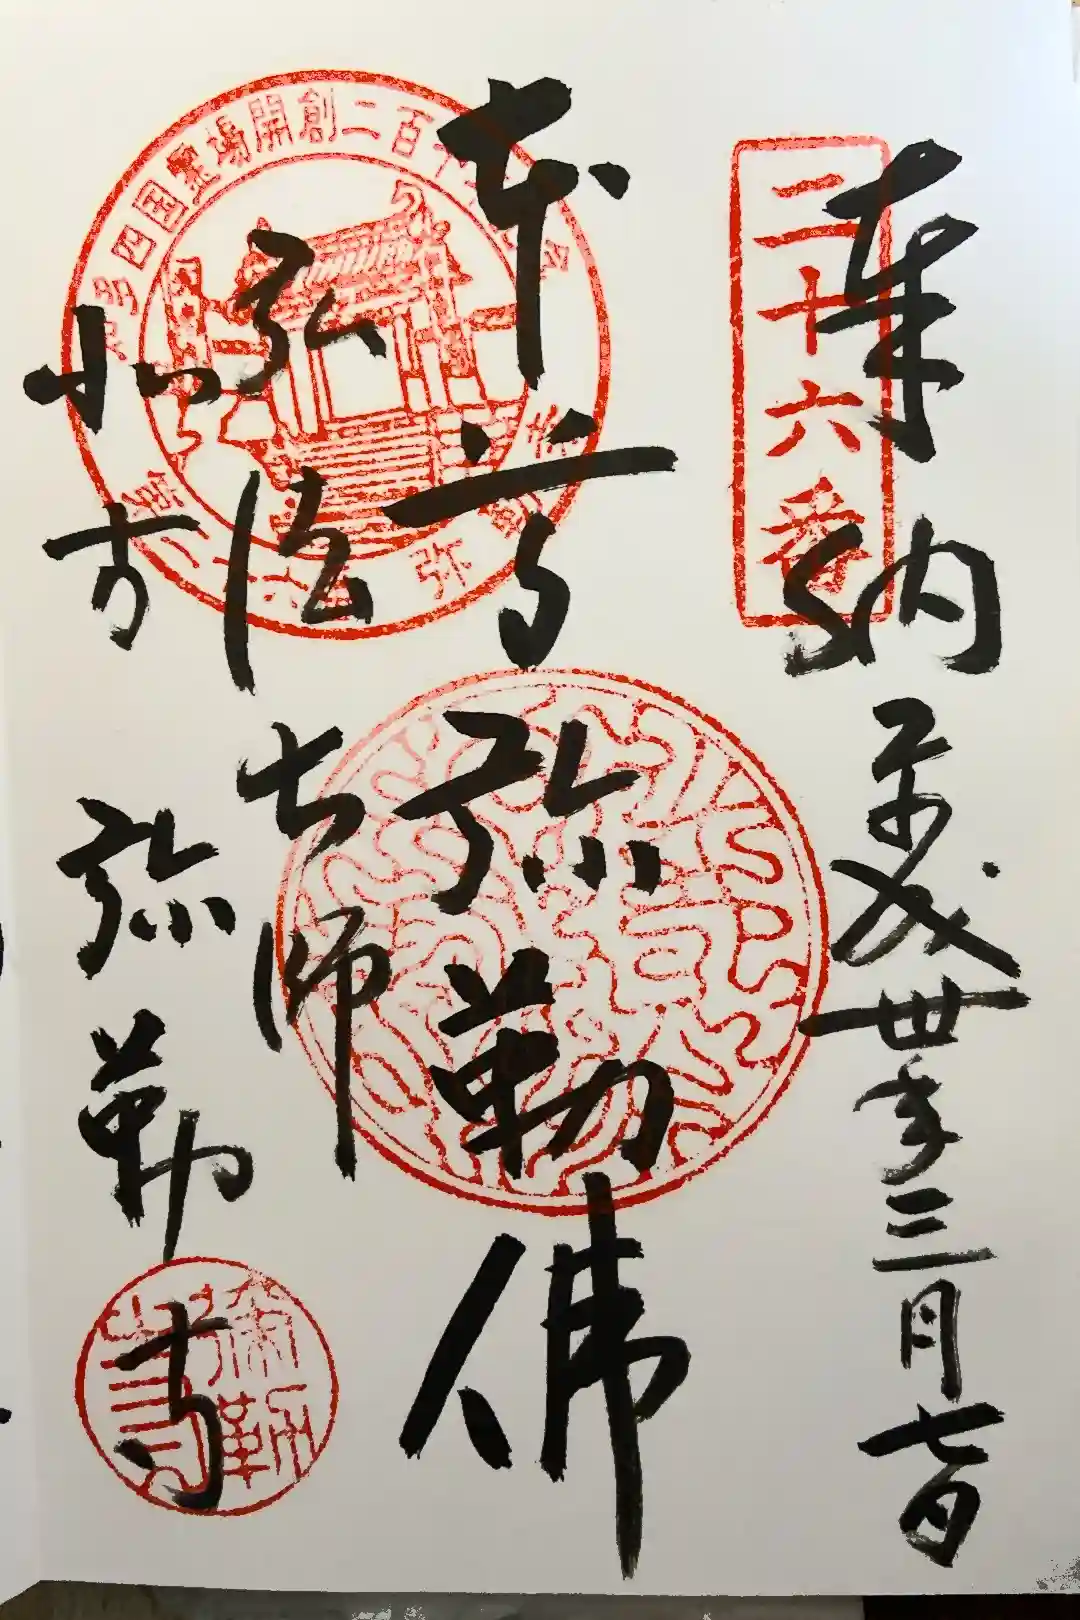 二十六番
奉納 平成卅年三月七日
本尊 弥勒佛
弘法大師
北方 弥勒寺
四国霊場開創二百十